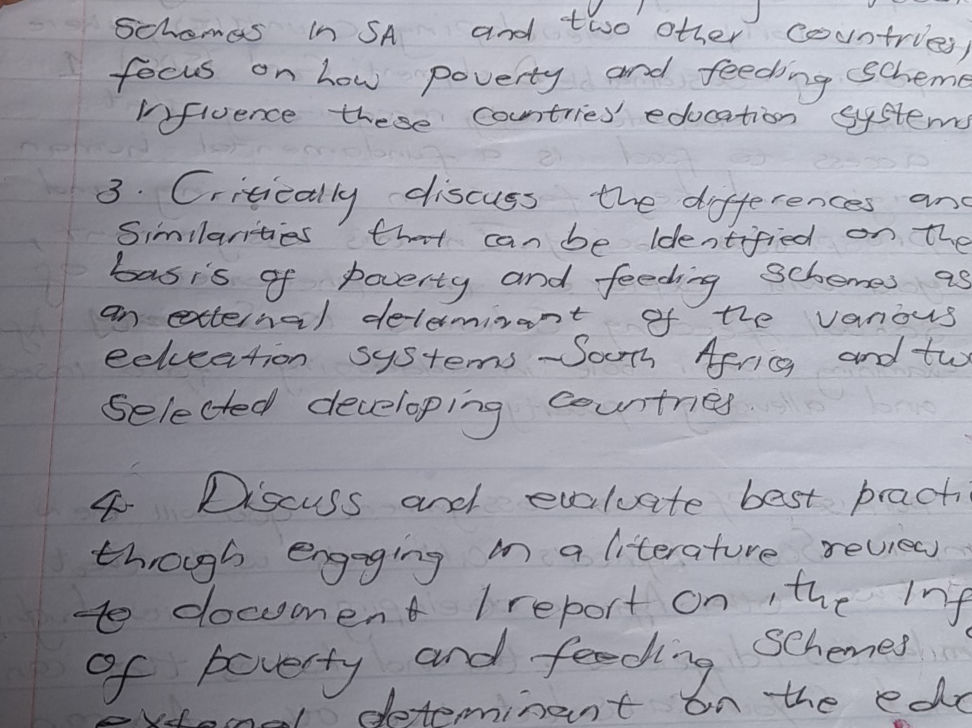 schemes in SA and two other countries,
focus on how poverty and feeding scheme
influence these countries' education systems
3. Critically discuss the differences and
similarities that can be identified on the
basis of poverty and feeding schemes as
an external determinant of the various
education systems - South Africa and two
selected developing countries.
4. Discuss and evaluate best practi
through engaging in a literature review
to document / report on the inf
of poverty and feeding schemes
external determinant on the edu